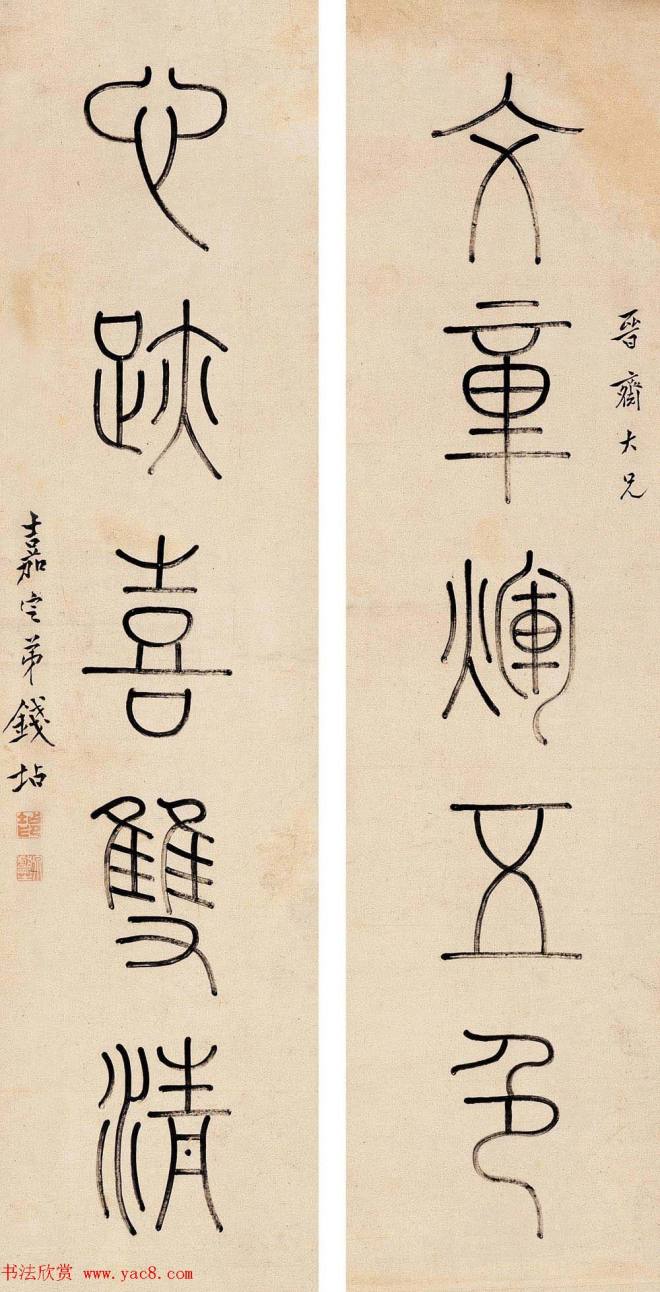 晉齋大兄
文章煇五色
心跡喜雙清
嘉定弟錢坫
书法欣赏 www.yac8.com